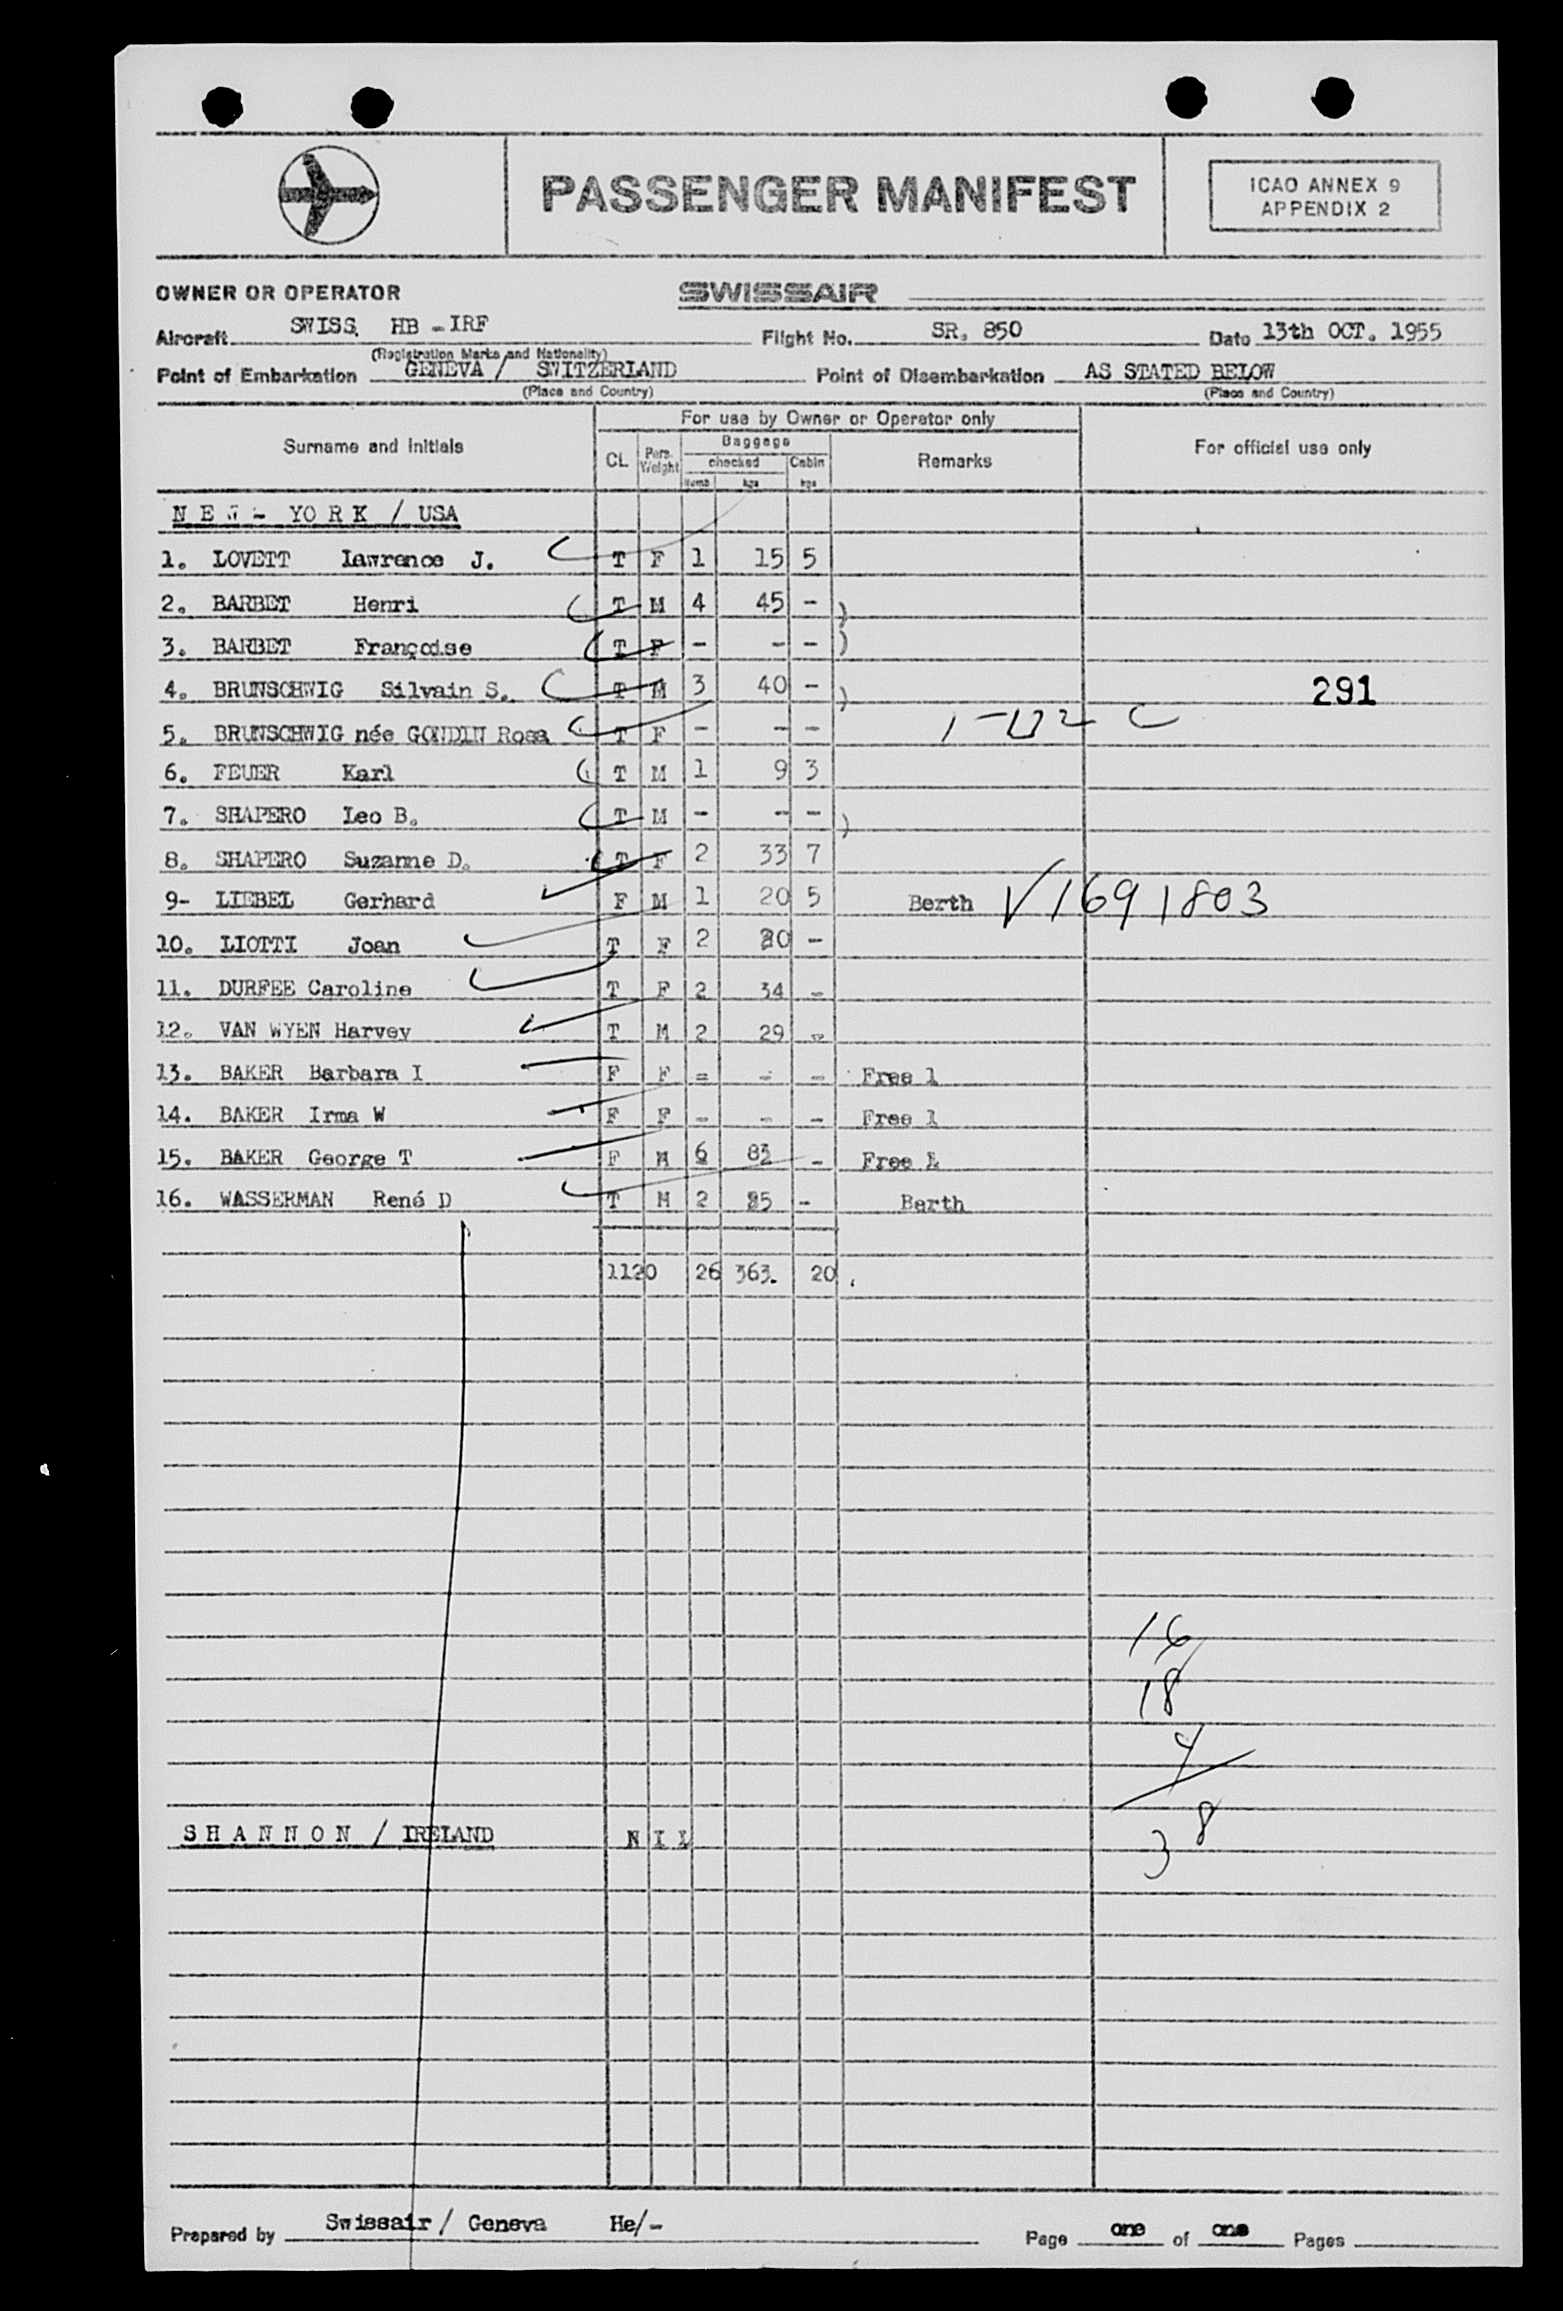 PASSENGER MANIFEST
ICAO ANNEX 9
APPENDIX 2
OWNER OR OPERATOR SWISSAIR
Aircraft SWISS HB - IRF Flight No. SR. 850 Date 13th OCT. 1955
(Registration Marks and Nationality)
Point of Embarkation GENEVA / SWITZERLAND Point of Disembarkation AS STATED BELOW
(Place and Country) (Place and Country)
For use by Owner or Operator only
Surname and Initials CL Pers. Weight Baggage checked Cabin Remarks For official use only
Numb kgs kgs
N E W - YO R K / USA
1. LOVETT Lawrence J. T F 1 15 5
2. BARBET Henri T M 4 45 - )
3. BARBET Françoise T F - - - )
4. BRUNSCHWIG Silvain S. T M 3 40 - ) 291
5. BRUNSCHWIG née GONDIN Rosa T F - - -
6. FEUER Karl T M 1 9 3
7. SHAPERO Leo B. T M - - - )
8. SHAPERO Suzanne D. T F 2 33 7
9- LIEBEL Gerhard F M 1 20 5 Berth V1691803
10. LIOTTI Joan T F 2 -
11. DURFEE Caroline T F 2 34 -
12. VAN WYEN Harvey T M 2 29 -
13. BAKER Barbara I F F - - - Free 1
14. BAKER Irma W F F - - - Free 1
15. BAKER George T F M 6 - Free
16. WASSERMAN René D T M 2 - Berth
1120 26 363. 20
16
18
4
38
S H A N N O N / IRELAND N I L
Prepared by Swissair / Geneva He/- Page one of one Pages